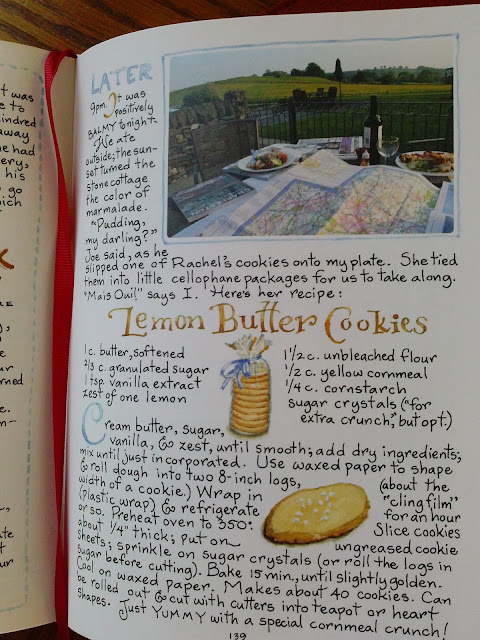 t was
e to
indred
away
he had
ery,
his
go
hich
LATER
9pm. It was
positively
BALMY tonight.
We ate
outside; the sun-
set turned the
stone cottage
the color of
marmalade.
"Pudding,
my darling?"
Joe said, as he
slipped one of Rachel's cookies onto my plate. She tied
them into little cellophane packages for us to take along.
"Mais Oui!" says I. Here's her recipe:
Lemon Butter Cookies
1 c. butter, softened
2/3 c. granulated sugar
1 tsp. vanilla extract
zest of one lemon
1 1/2 c. unbleached flour
1/2 c. yellow cornmeal
1/4 c. cornstarch
sugar crystals ("for
extra crunch," but opt.)
Cream butter, sugar,
vanilla, & zest, until smooth; add dry ingredients;
mix until just incorporated. Use waxed paper to shape
& roll dough into two 8-inch logs, (about the
width of a cookie.) Wrap in "cling film"
(plastic wrap) & refrigerate for an hour
or so. Preheat oven to 350°. Slice cookies
about 1/4" thick; put on ungreased cookie
sheets; sprinkle on sugar crystals (or roll the logs in
sugar before cutting). Bake 15 min., until slightly golden.
Cool on waxed paper. Makes about 40 cookies. Can
be rolled out & cut with cutters into teapot or heart
shapes. Just YUMMY with a special cornmeal crunch!
139